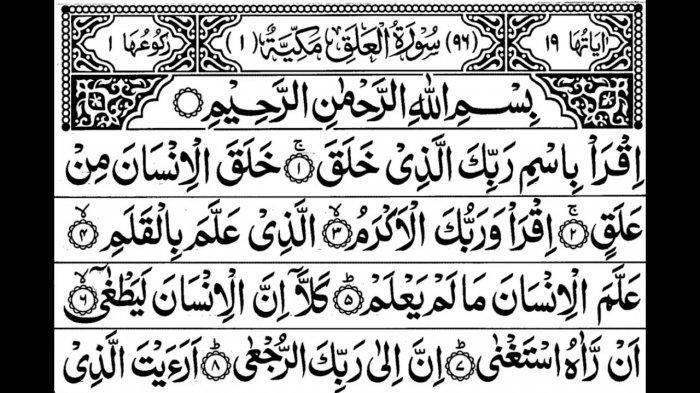 اٰيَاتُهَا ١٩ (٩٦) سُوْرَةُ الْعَلَقِ مَكِّيَّةٌ (١) رُكُوْعُهَا ١
بِسْمِ اللّٰهِ الرَّحْمٰنِ الرَّحِيْمِ
اِقْرَاْ بِاسْمِ رَبِّكَ الَّذِىْ خَلَقَ ۚ﴿١﴾ خَلَقَ الْاِنْسَانَ مِنْ
عَلَقٍ ۚ﴿٢﴾ اِقْرَاْ وَرَبُّكَ الْاَكْرَمُ ۙ﴿٣﴾ الَّذِىْ عَلَّمَ بِالْقَلَمِ ۙ﴿٤﴾
عَلَّمَ الْاِنْسَانَ مَا لَمْ يَعْلَمْ ؕ﴿٥﴾ كَلَّاۤ اِنَّ الْاِنْسَانَ لَيَطْغٰٓى ۙ﴿٦﴾
اَنْ رَّاٰهُ اسْتَغْنٰى ؕ﴿٧﴾ اِنَّ اِلٰى رَبِّكَ الرُّجْعٰى ؕ﴿٨﴾ اَرَءَيْتَ الَّذِىْ